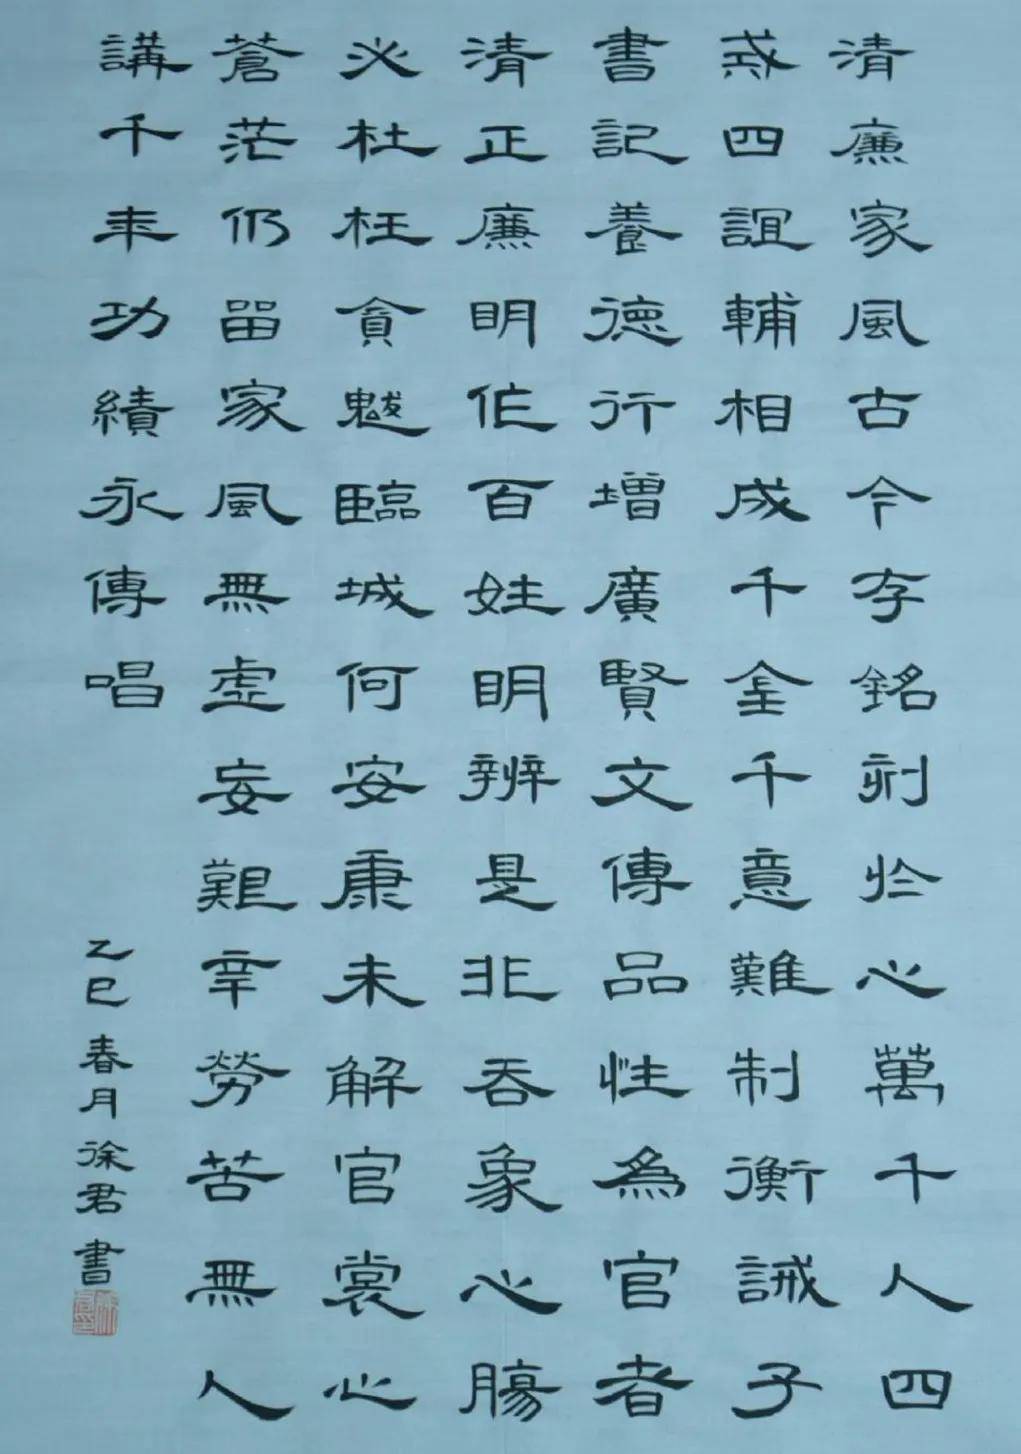 清廉家風古今存銘刻於心萬千人四
四誼輔相成千金千意難制衡誡子
書記養德行增廣賢文傳品性為官者
清正廉明作百姓明辨是非吞象心腸
必杜枉貪魃臨城何安康未解官裳心
蒼茫仍留家風無虛妄艱辛勞苦無人
講千年功績永傳唱
乙巳春月徐君書